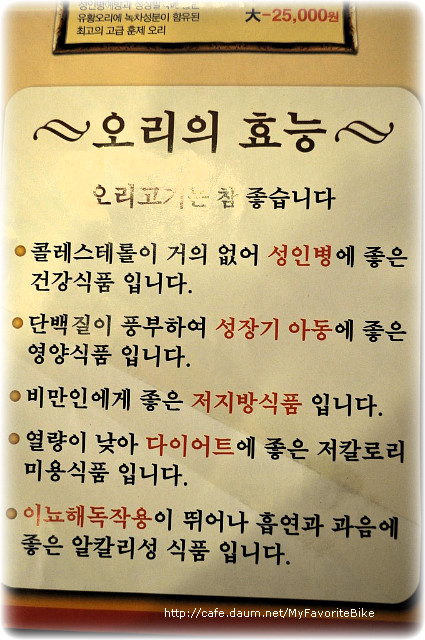 유황오리에 녹차성분이 함유된
최고의 고급 훈제 오리
大-25,000원
~오리의 효능~
오리고기는 참 좋습니다
콜레스테롤이 거의 없어 성인병에 좋은
건강식품 입니다.
단백질이 풍부하여 성장기 아동에 좋은
영양식품 입니다.
비만인에게 좋은 저지방식품 입니다.
열량이 낮아 다이어트에 좋은 저칼로리
미용식품 입니다.
이뇨해독작용이 뛰어나 흡연과 과음에
좋은 알칼리성 식품 입니다.
http://cafe.daum.net/MyFavoriteBike